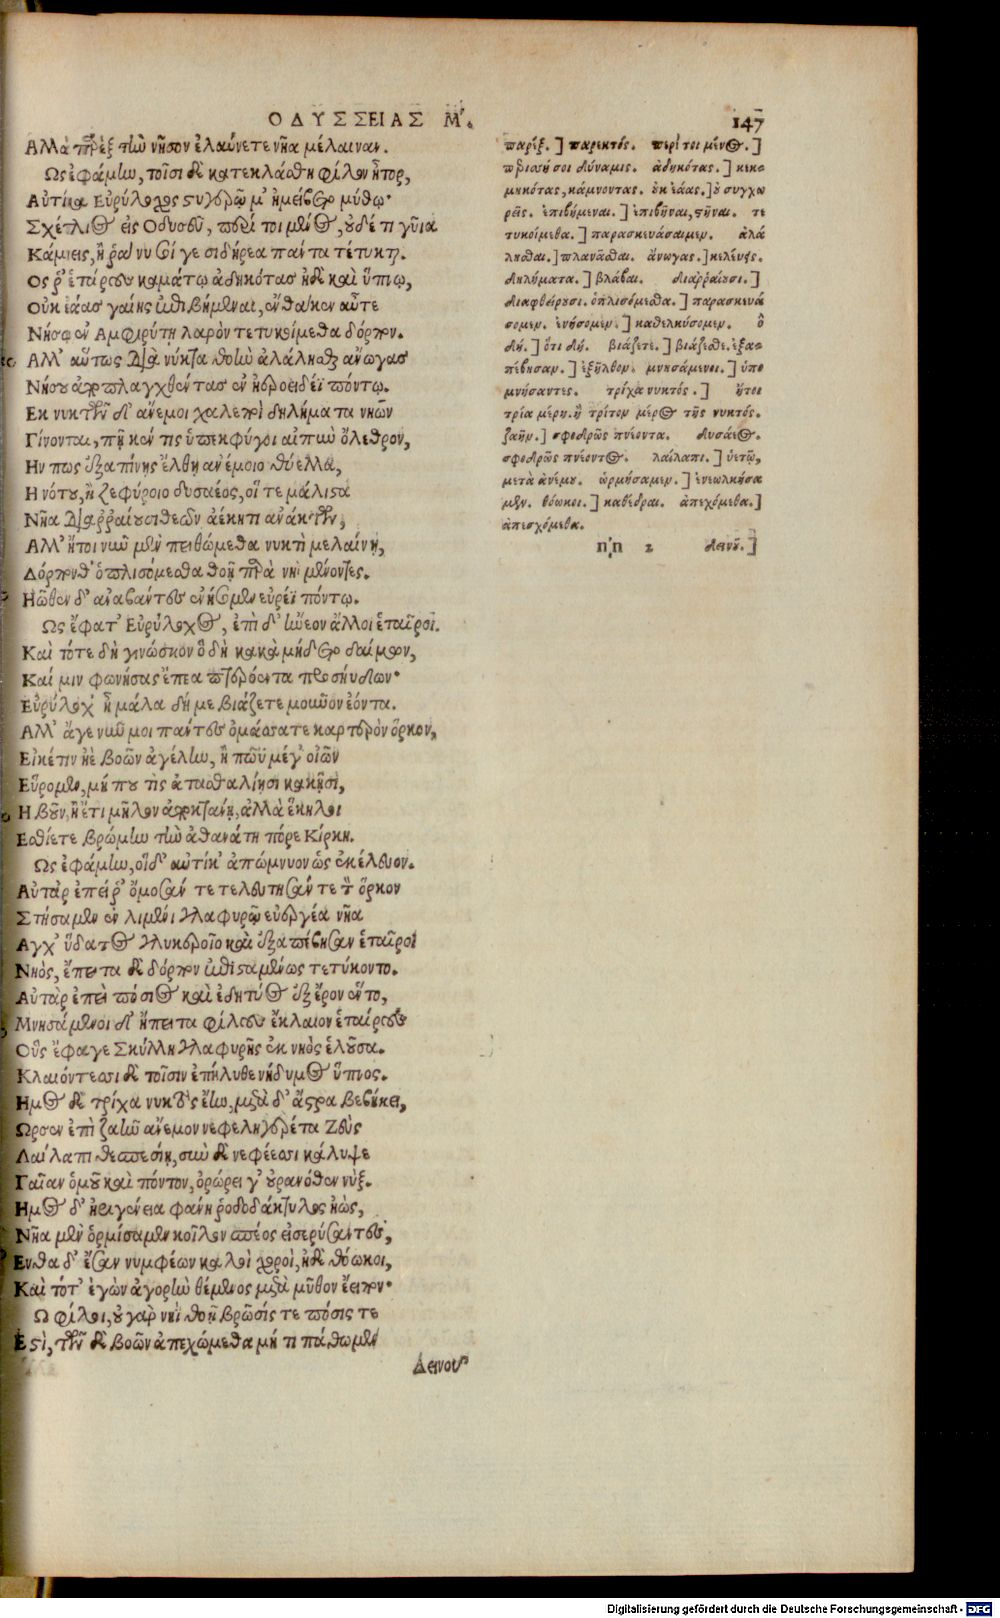 ΟΔΥΣΣΕΙΑΣ Μ.
147
Αλλὰ παρὲξ τὴν νῆσον ἐλαύνετε νῆα μέλαιναν.
Ως ἐφάμην, τοῖσι δὲ κατεκλάσθη φίλον ἦτορ,
Αὐτίκα Εὐρύλοχος στυγερῷ μ' ἠμείβετο μύθῳ·
Σχέτλιος εἰς Οδυσεῦ, περί τοι μένος, οὐδέ τι γῦια
Κάμνεις, ἦ ῥά νυ σοί γε σιδήρεα πάντα τέτυκται.
Ος ῥ' ἑτάρους καμάτῳ ἀδηκότας ἠδὲ καὶ ὕπνῳ,
Οὐκ ἐάας γαίης ἐπιβήμεναι, ἔνθα κεν αὖτε
Νήσῳ ἐν Αμφιρύτῃ λαρὸν τετυκοίμεθα δόρπον.
Αλλ' αὔτως διὰ νύκτα θοὴν ἀλάλησθαι ἄνωγας
Νήσου ἀποπλαγχθέντας ἐν ἠεροειδέϊ πόντῳ.
Εκ νυκτῶν δ' ἄνεμοι χαλεποὶ δηλήματα νηῶν
Γίνονται, πῇ κέν τις ὑπεκφύγοι αἰπὺν ὄλεθρον,
Ην πως ἐξαπίνης ἔλθῃ ἀνέμοιο θύελλα,
Η νότου, ἢ ζεφύροιο δυσαέος, οἵ τε μάλιστα
Νῆα διαρραίουσι θεῶν ἀέκητι ἀνάκτων,
Αλλ' ἤτοι νῦν μὲν πειθώμεθα νυκτὶ μελαίνῃ,
Δόρπον θ' ὁπλισόμεσθα θοῇ παρὰ νηὶ μένοντες.
Ηῶθεν δ' ἀναβάντες ἐνήσομεν εὐρέϊ πόντῳ.
Ως ἔφατ' Εὐρύλοχος, ἐπὶ δ' ᾔνεον ἄλλοι ἑταῖροι.
Καὶ τότε δὴ γινώσκον ὃ δὴ κακὰ μήδετο δαίμων,
Καί μιν φωνήσας ἔπεα πτερόεντα προσηύδων·
Εὐρύλοχ' ἦ μάλα δή με βιάζετε μοῦνον ἐόντα.
Αλλ' ἄγε νῦν μοι πάντες ὀμόσσατε καρτερὸν ὅρκον,
Εἴ κέ τιν ἠὲ βοῶν ἀγέλην, ἢ πῶϋ μέγ' οἰῶν
Εὕρομεν, μή που τὶς ἀτασθαλίῃσι κακῇσι,
Η βοῦν, ἠὲ τι μῆλον ἀποκτάνῃ, ἀλλὰ ἕκηλοι
Εσθίετε βρώμην τὴν ἀθανάτη πόρε Κίρκη.
Ως ἐφάμην, οἱ δ' αὐτίκ' ἀπώμνυον ὡς ἐκέλευον.
Αὐτὰρ ἐπεί ῥ' ὄμοσάν τε τελεύτησάν τε τὸν ὅρκον
Στήσαμεν ἐν λιμένι γλαφυρῷ εὐεργέα νῆα
Αγχ' ὕδατος γλυκεροῖο καὶ ἐξαπέβησαν ἑταῖροι
Νηὸς, ἔπειτα δὲ δόρπον ἐπισταμένως τετύκοντο.
Αὐτὰρ ἐπεὶ πόσιος καὶ ἐδητύος ἐξ ἔρον ἕντο,
Μνησάμενοι δ' ἤπειτα φίλους ἔκλαιον ἑταίρους
Οὓς ἔφαγε Σκύλλη γλαφυρῆς ἐκ νηὸς ἑλοῦσα.
Κλαιόντεσσι δὲ τοῖσιν ἐπήλυθε νήδυμος ὕπνος.
Ημος δὲ τρίχα νυκτὸς ἔην, μετὰ δ' ἄστρα βεβήκει,
Ωρσεν ἐπὶ ζαῆν ἄνεμον νεφεληγερέτα Ζεὺς
Λαίλαπι θεσπεσίῃ, σὺν δὲ νεφέεσσι κάλυψε
Γαῖαν ὁμοῦ καὶ πόντον, ὀρώρει γ' οὐρανόθεν νύξ.
Ημος δ' ἠριγένεια φάνη ῥοδοδάκτυλος ἠὼς,
Νῆα μὲν ὁρμίσαμεν κοῖλον σπέος εἰσερύσαντες,
Ενθα δ' ἔσαν νυμφέων καλοὶ χοροὶ, ἠδὲ θόωκοι,
Καὶ τότ' ἐγὼν ἀγορὴν θέμενος μετὰ μῦθον ἔειπον·
Ω φίλοι, ἐν γὰρ νηῒ θοῇ βρῶσίς τε πόσις τε
Εστὶ, τῶν δὲ βοῶν ἀπεχώμεθα μή τι πάθωμεν
Δεινοῦ
παρὲξ.] παρεκτός. περί τοι μένος.]
περισσή σοι δύναμις. ἀδηκότας.] κεκ-
μηκότας, κάμνοντας. οὐκ ἐάας.] οὐ συγχω
ρεῖς. ἐπιβήμεναι.] ἐπιβῆναι, στῆναι. τε
τυκοίμεθα.] παρασκευάσαιμεν. ἀλά
λησθαι.] πλανᾶσθαι. ἄνωγας.] κελεύεις.
δηλήματα.] βλάβαι. διαρραίουσι.]
διαφθείρουσι. ὁπλισόμεσθα.] παρασκευά
σομεν. ἐνήσομεν.] καθελκύσομεν. ὃ
δή.] ὅτι δή. βιάζετε.] βιάζεσθε. ἐξα-
πέβησαν.] ἐξῆλθον. μνησάμενοι.] ὑπο
μνήσαντες. τρίχα νυκτός.] ἤτοι
τρία μέρη. ἢ τρίτον μέρος τῆς νυκτός.
ζαῆν.] σφοδρῶς πνέοντα. δυσάεος.
σφοδρῶς πνέοντος. λαίλαπι.] ὑετῷ,
μετὰ ἀνέμου. ὡρμήσαμεν.] ἐνεωλκήσα
μεν. θόωκοι.] καθέδραι. ἀπεχόμεθα.]
ἀπεσχόμεθα.
nn 2 δεινοῦ.]
Digitalisierung gefördert durch die Deutsche Forschungsgemeinschaft - DFG